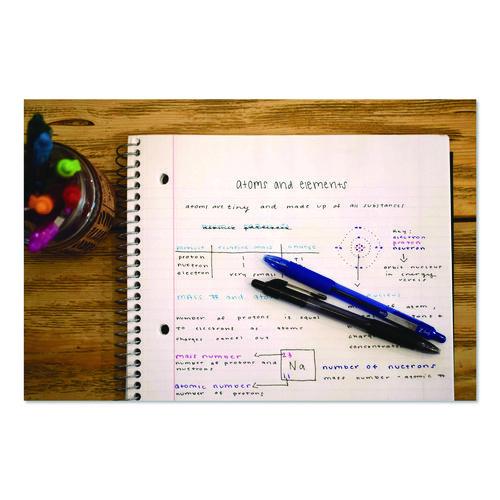 atoms and elements
atoms are tiny and made up of all substances
particle relative mass charge
proton 1 +1
neutron 1
electron very small
Key:
electron
proton
neutron
orbit nucleus
in energy
levels
mass # and
nucleus
number of protons is equal
to electrons
atomic
charges cancel out
atom,
mass number
number of protons and
neutrons
23
Na
11
atomic number
number of protons
number of neutrons
mass number - atomic #